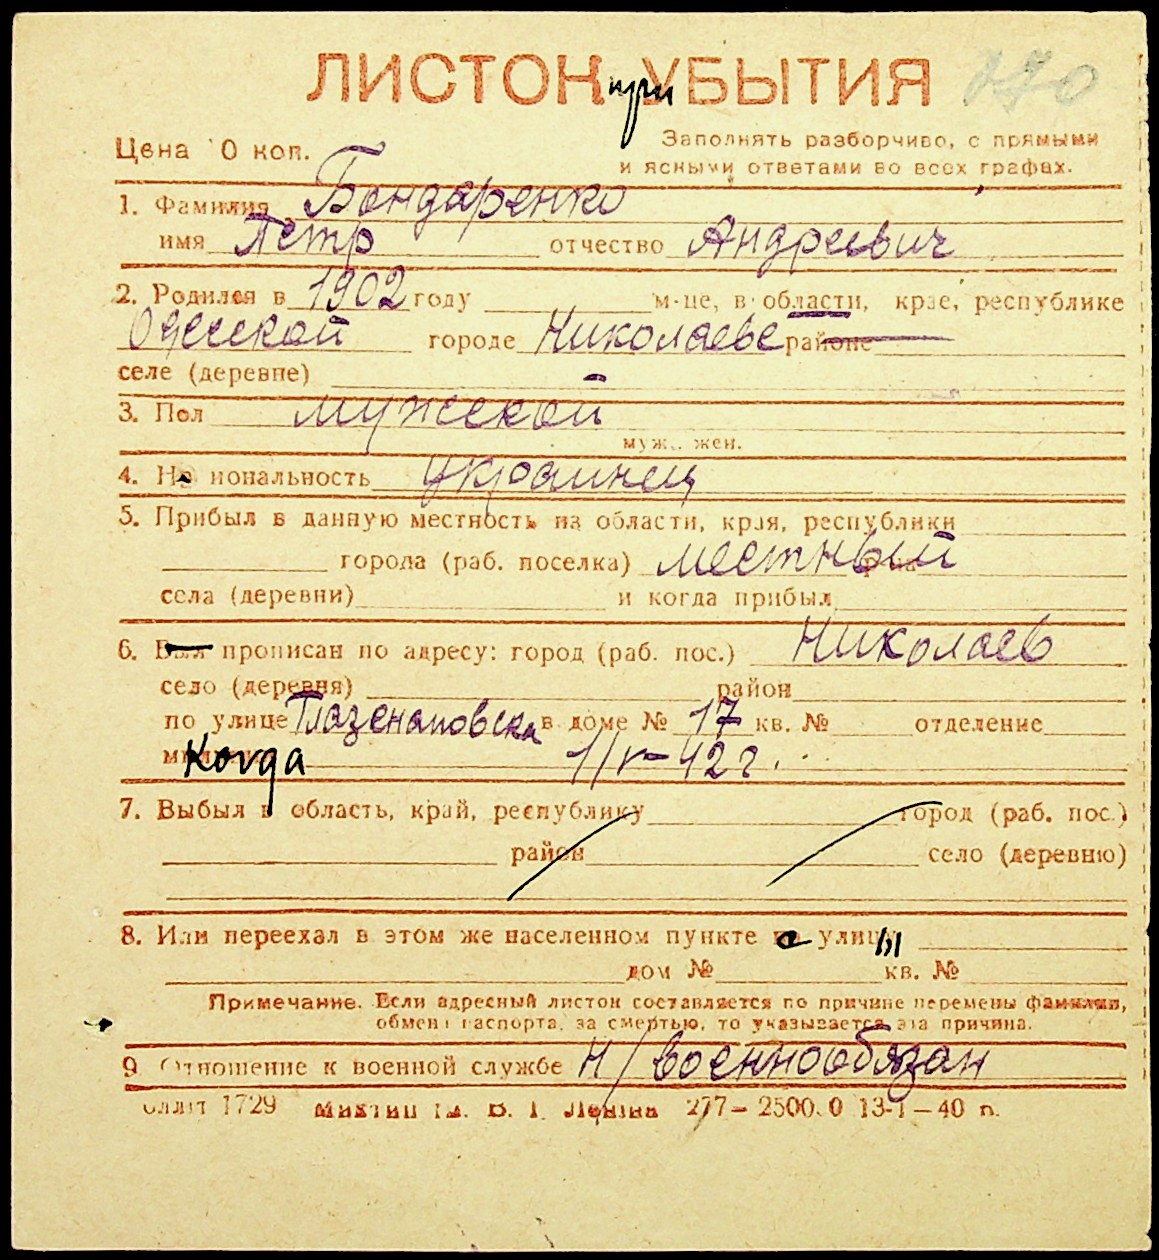 ЛИСТОК при УБЫТИЯ 270
Цена 10 коп. Заполнять разборчиво, с прямыми
и ясными ответами во всех графах.
1. Фамилия Бондаренко
имя Петр отчество Андреевич
2. Родился в 1902 году м-це, в области, крае, республике
Одесской городе Николаеве районе
селе (деревне)
3. Пол мужской
муж., жен.
4. Национальность украинец
5. Прибыл в данную местность из области, края, республики
города (раб. поселка) местный
села (деревни) и когда прибыл
6. Был прописан по адресу: город (раб. пос.) Николаев
село (деревня) район
по улице Глазенаповская в доме № 17 кв. № отделение
Когда 1/V-42 г.
7. Выбыл в область, край, республику город (раб. пос.)
район село (деревню)
8. Или переехал в этом же населенном пункте с улицы
дом № кв. №
Примечание. Если адресный листок составляется по причине перемены фамилии,
обмена паспорта, за смертью, то указывается эта причина.
9. Отношение к военной службе н/военнообязан
1729 В. І. Леніна 277—2500.0 13-I—40 п.